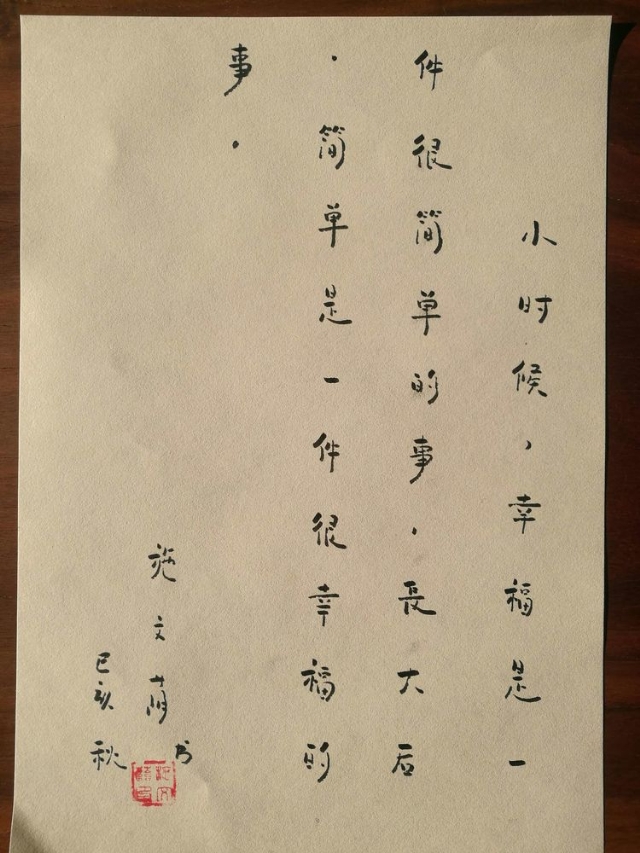 小时候，幸福是一
件很简单的事，長大后
，简单是一件很幸福的
事。
施文萳书
己亥秋